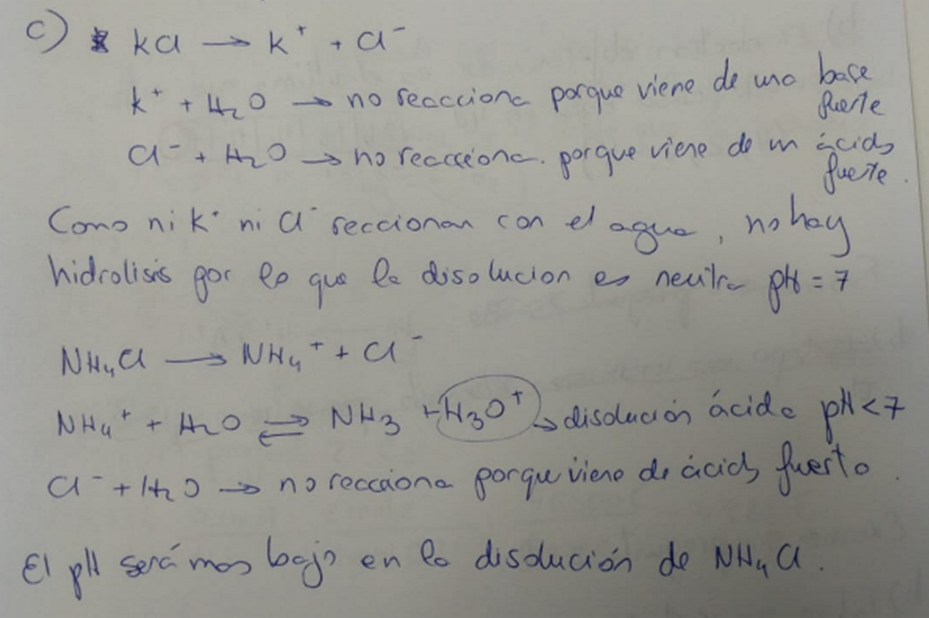 c) KCl → K⁺ + Cl⁻
K⁺ + H₂O → no reacciona porque viene de una base fuerte
Cl⁻ + H₂O → no reacciona. porque viene de un ácido fuerte.
Como ni K⁺ ni Cl⁻ reaccionan con el agua, no hay
hidrolisis por lo que la disolucion es neutra pH = 7
NH₄Cl → NH₄⁺ + Cl⁻
NH₄⁺ + H₂O ⇌ NH₃ + H₃O⁺ ↘ disolución ácida pH < 7
Cl⁻ + H₂O → no reacciona porque viene de ácido fuerte.
El pH será mas bajo en la disolución de NH₄Cl.